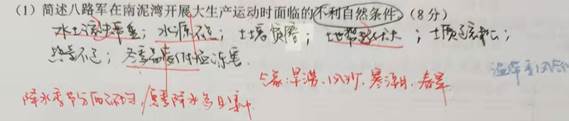 (1)简述八路军在南泥湾开展大生产运动时面临的不利自然条件。(8分)
水土流失严重；水源不足；土壤贫瘠；地势起伏大；土质疏松；
热量不足；冬季易冻害。
气象：旱涝、风沙、寒冻、春旱 温牢
降水季节分配不均，夏季降水多且集中